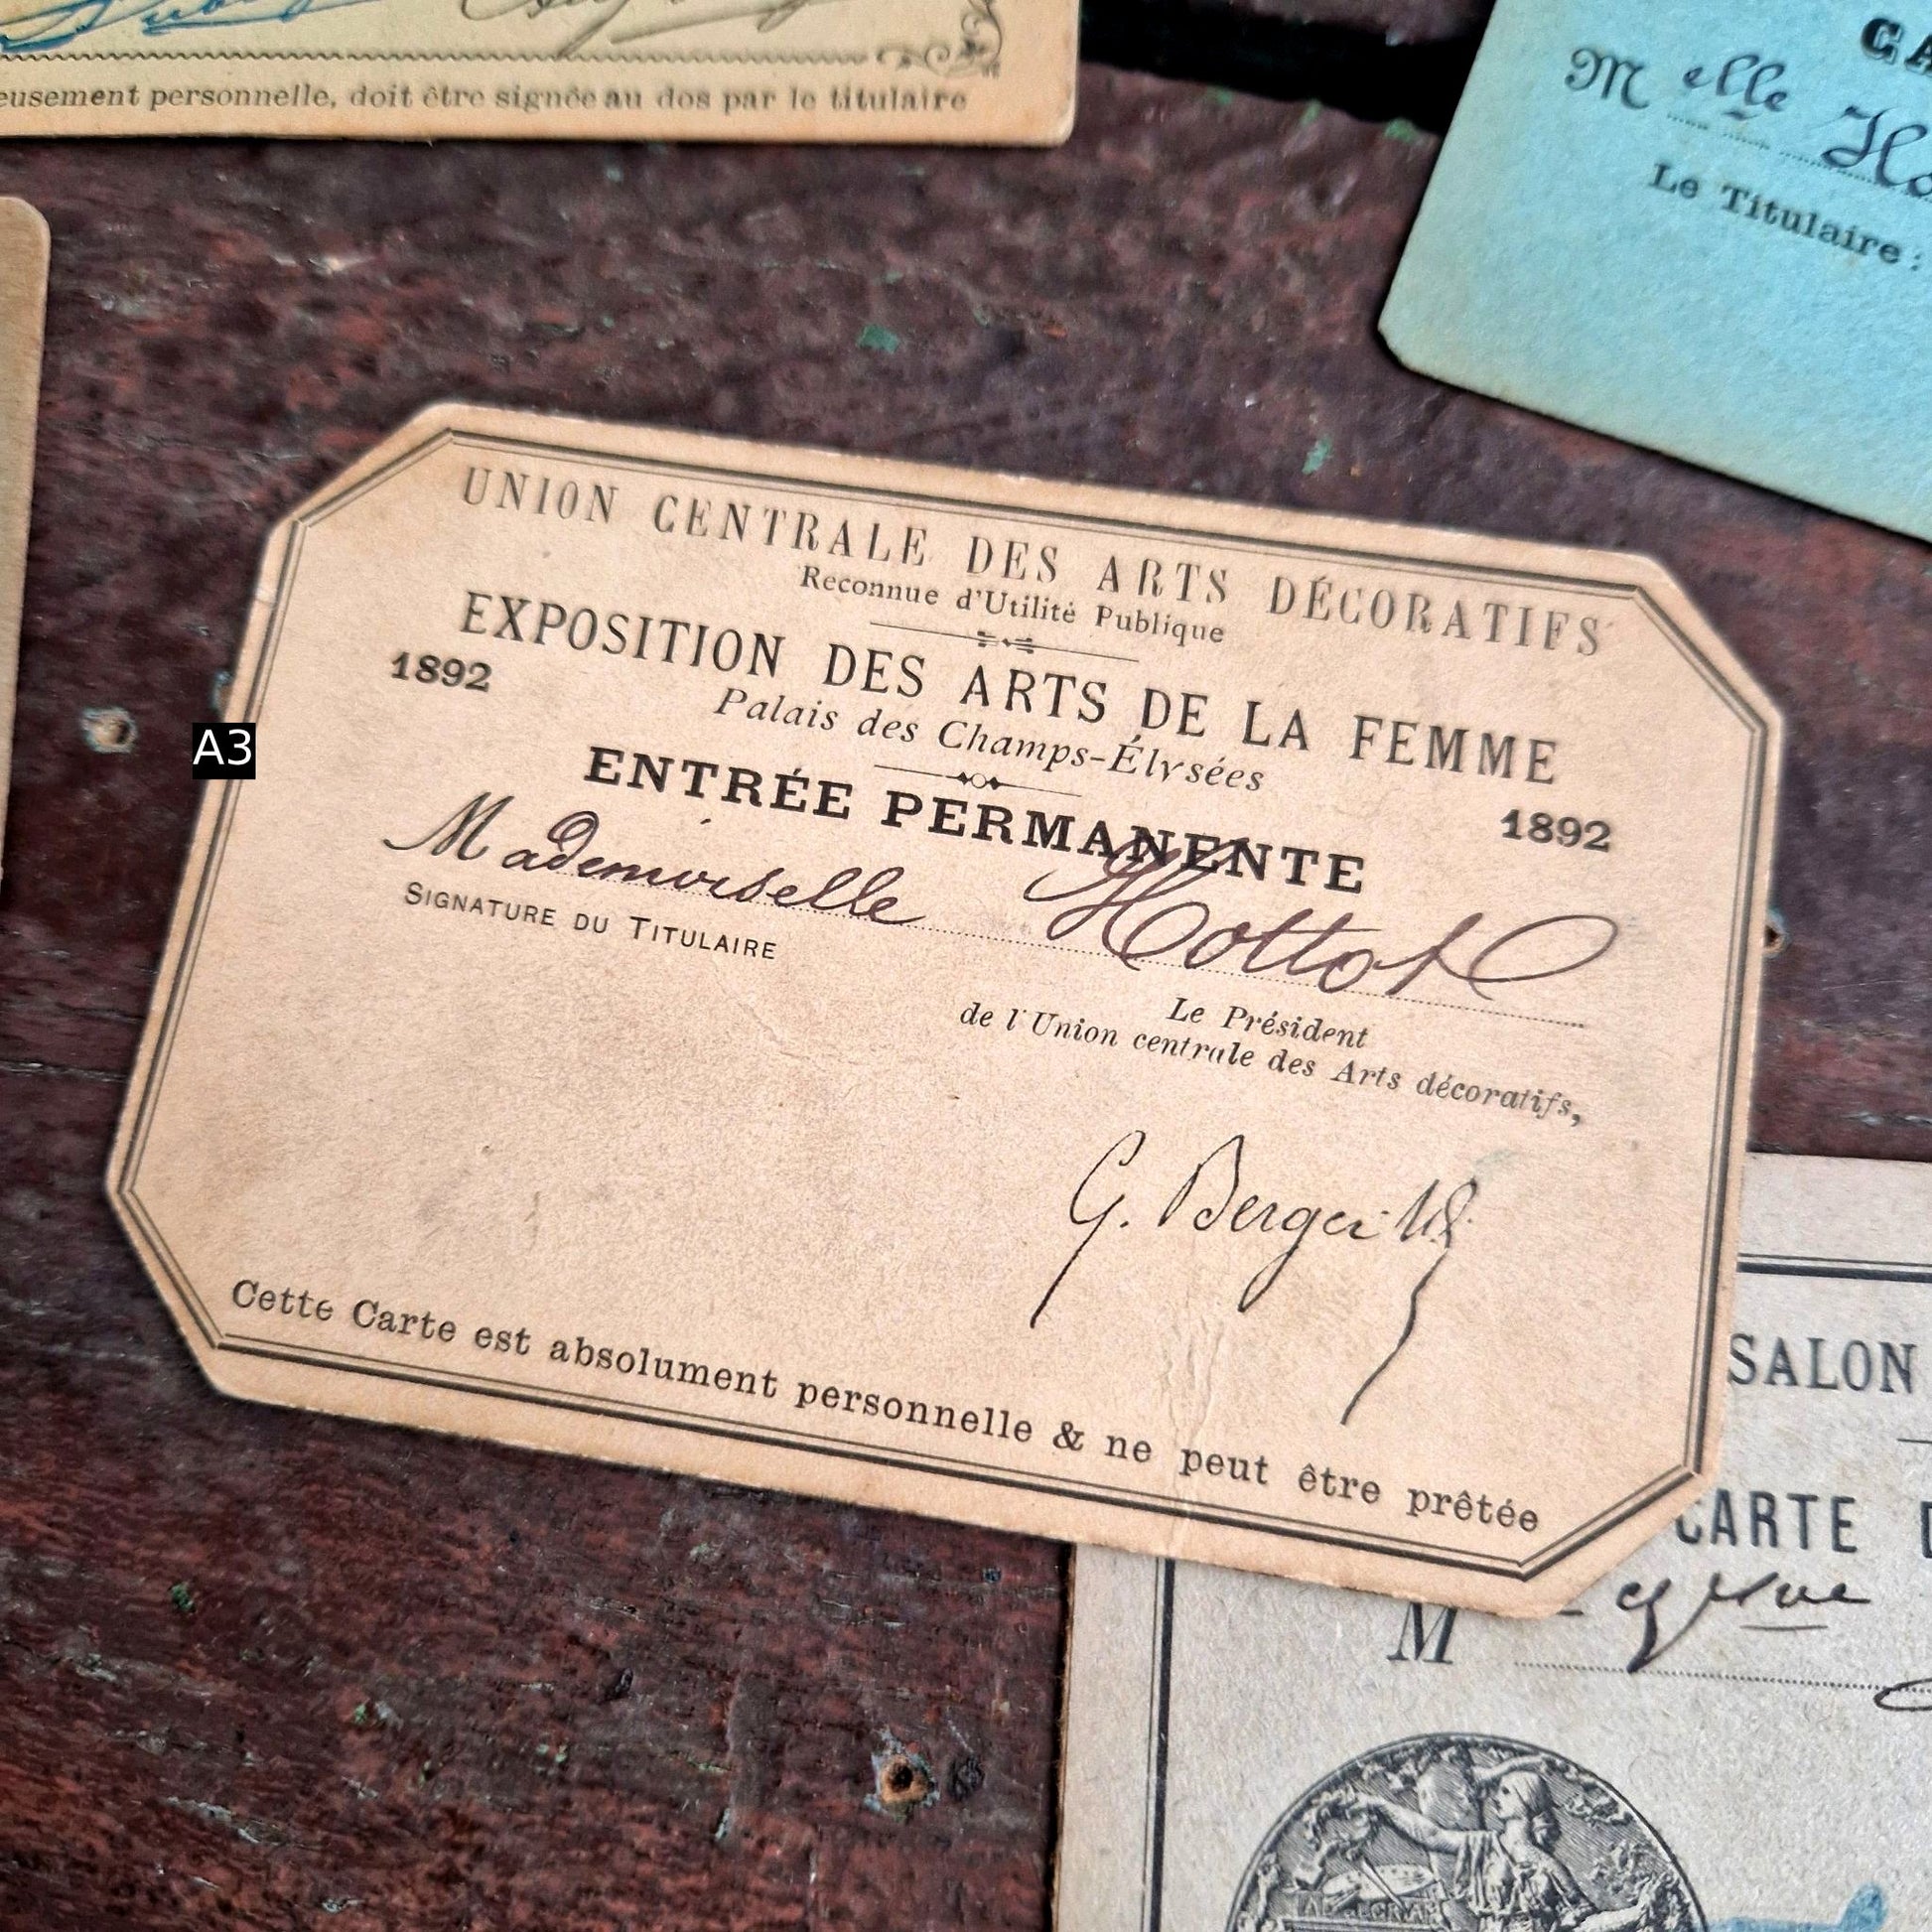 eusement personnelle, doit être signée au dos par le titulaire
Melle Ho
Le Titulaire :
A3
UNION CENTRALE DES ARTS DÉCORATIFS
Reconnue d'Utilité Publique
EXPOSITION DES ARTS DE LA FEMME
1892 1892
Palais des Champs-Élysées
ENTRÉE PERMANENTE
Mademoiselle Hottot
SIGNATURE DU TITULAIRE
Le Président
de l'Union centrale des Arts décoratifs,
G. Berger
Cette Carte est absolument personnelle & ne peut être prêtée
SALON
CARTE D
M